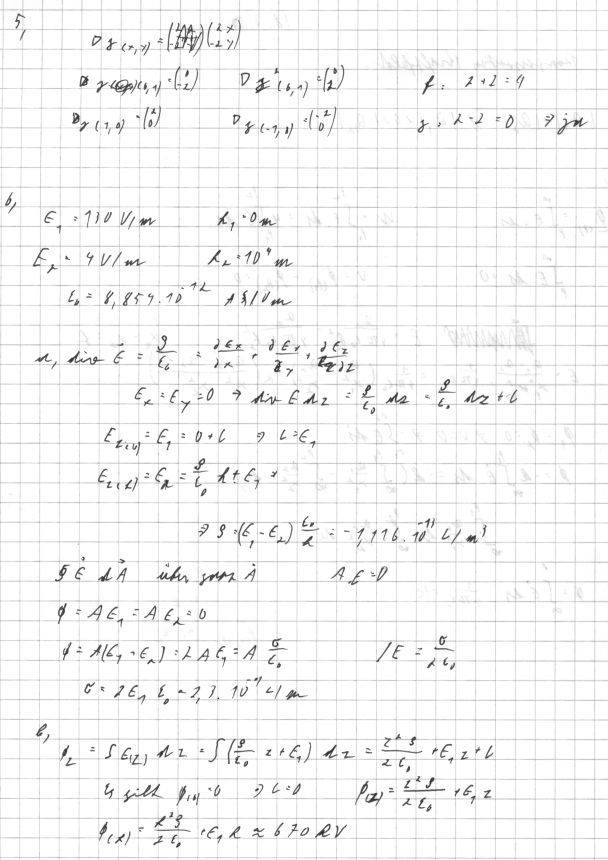 5,
∇ g(x,y) = (2 -2)(2x -2y)
g(0,1) = (0 -2) ∇ g (0,1) = (0 2) f: 2+2=4
g(1,0) = (2 0) ∇ g(-1,0) = (-2 0) g: 2-2=0 ⇒ ja
6,
E₁ = 130 V/m h₁ = 0m
E₂ = 4 V/m h₂ = 10⁴ m
ε₀ = 8,854·10⁻¹² As/Vm
a, div E⃗ = ρ/ε₀ = ∂Ex/∂x + ∂Ey/∂y + ∂Ez/∂z
Ex = Ey = 0 ⇒ div E dz = ρ/ε₀ dz = ρ/ε₀ dz + C
Ez(0) = E₁ = 0 + C ⇒ C = E₁
Ez(h) = E₂ = ρ/ε₀ h + E₁
⇒ ρ = (E₁ - E₂) ε₀/h = -1,116·10⁻¹³ C/m³
∮ E⃗ dA⃗ über ganz A⃗ A E = 0
φ = A E₁ = A E₂ = 0
φ = A(E₁ + E₂) = 2 A E₁ = A σ/ε₀ /E = σ/2ε₀
σ = 2E₁ ε₀ = 2,3·10⁻⁹ C/m
b,
φz = ∫ E(z) dz = ∫ (ρ/ε₀ z + E₁) dz = z²ρ/2ε₀ + E₁ z + C
Es gilt φ(0) = 0 ⇒ C = 0 φ(z) = z²ρ/2ε₀ + E₁ z
φ(h) = h²ρ/2ε₀ + E₁ h ≈ 670 kV